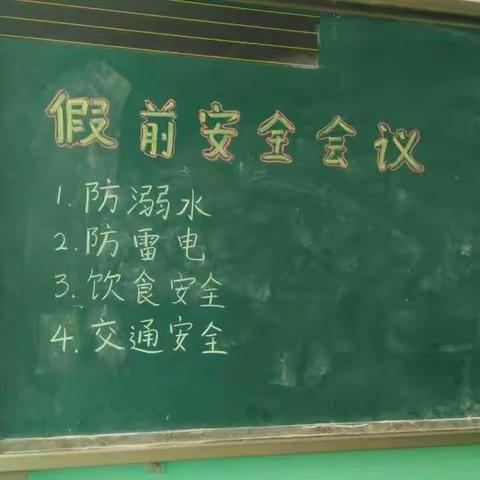 假前安全会议
1.防溺水
2.防雷电
3.饮食安全
4.交通安全